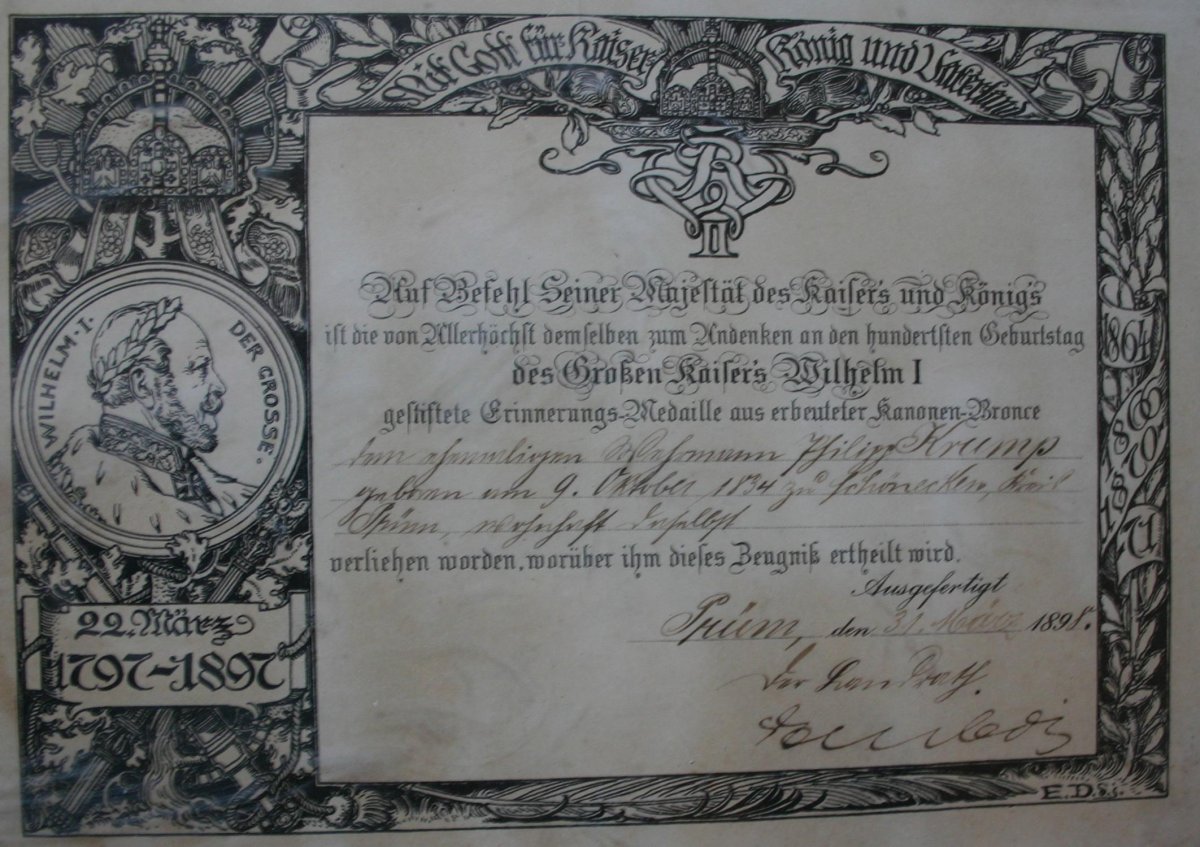 Mit Gott für Kaiser König und Vaterland
WILHELM·I· DER GROSSE.
22. März
1797–1897
II
Auf Befehl Seiner Majestät des Kaiser's und König's
ist die von Allerhöchst demselben zum Andenken an den hundertsten Geburtstag
des Großen Kaiser's Wilhelm I
gestiftete Erinnerungs-Medaille aus erbeuteter Kanonen-Bronce
dem ehemaligen Wehrmann Philipp Krump
geboren am 9. Oktober 1834 zu Schönecken, Kreis
Prüm, wohnhaft daselbst
verliehen worden, worüber ihm dieses Zeugniß ertheilt wird.
Ausgefertigt
Prüm, den 31. März 1898.
Der Landrath.
1864
1866
1870
71
E.D.